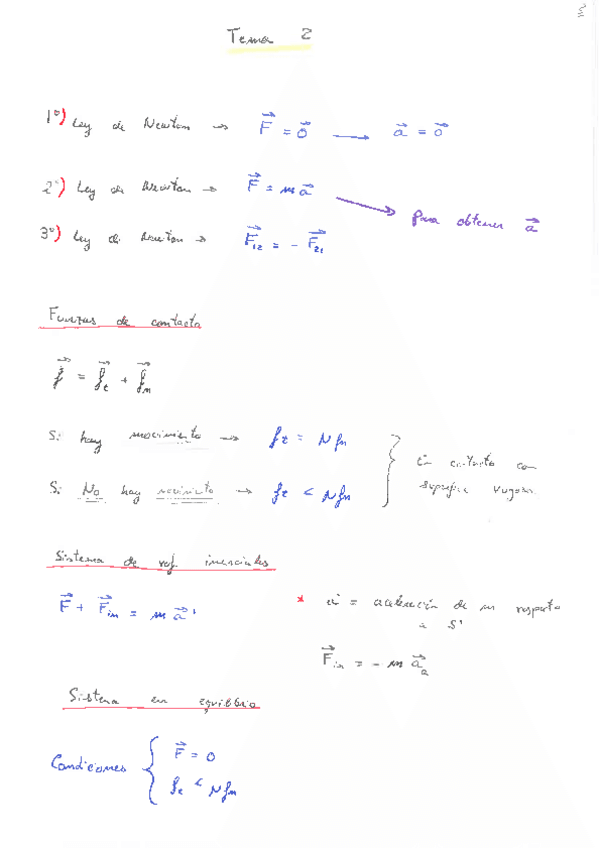 Tema 2
1º) Ley de Newton → F⃗ = 0⃗ → a⃗ = 0⃗
2º) Ley de Newton → F⃗ = m a⃗ → para obtener a⃗
3º) Ley de Newton → F⃗₁₂ = - F⃗₂₁
Fuerzas de contacto
f⃗ = f⃗t + f⃗n
Si hay movimiento → ft = N fn
Si No hay movimiento → ft < N fn
En contacto con
superficie rugosa
Sistema de ref. inerciales
F⃗ + F⃗in = m a⃗'
* a' = aceleración de m respecto
a S'
F⃗in = - m a⃗a
Sistema en equilibrio
Condiciones { F⃗ = 0
ft < N fn